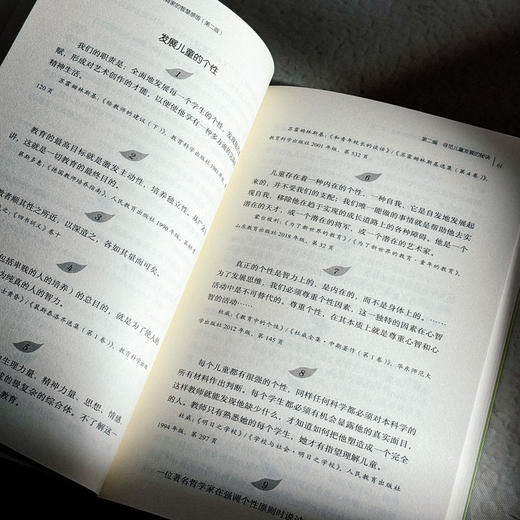 育家的智慧感悟(第二版)
发展儿童的个性
1
我们的职责是:全面地发展每一个学生的个性,发现
赋,形成对艺术创作的才能,以便使他享有一种多方面的
精神生活。
苏霍姆林斯基:《给教师的建议(下)》,教育科学出版社
120 页
2
教育的最高目标就是激发主动性,培养独立性,从
讲,这就是一切教育的最终目的。
第斯多惠:《德国教师培养指南》,人民教育出版社 1990 年版,
3
者顺其性之所近,以深造之,各如其量而可矣。
:《四书训义》
4
包括卑贱的人的培养)的总目的,就是为了使人
为纯真的人的智力。
士黄昏》/《裴斯泰洛齐选集(第1卷)》,教育科学出版
5
生理力量、精神力量、思想、情感
成的极复杂的综合体。不了解这
教育。
第二编 寻觅儿童发展的秘诀
苏霍姆林斯基:《和青年校长的谈话》/《苏霍姆林斯基选集(第4卷)》,
教育科学出版社 2001 年版,第 532 页
6
儿童存在着一种内在的个性,一种自我,它是自发地发展起
来的,并不受我们的支配;我们唯一能做的事情就是帮助他去实
现自我,移除他在趋于实现的成长道路上的各种障碍。他是一个
潜在的天才,或一个潜在的将军,或一个潜在的艺术家。
蒙台梭利:《为了新世界的教育》/《为了新世界的教育·童年的教育》,
山东教育出版社 2018 年版,第 32 页
7
真正的个性是智力上的,是内在的,而不是身体上的。……
为了发展思维,我们必须尊重个性因素。这一独特的因素在心智
活动中是不可替代的。尊重个性,在其本质上就是尊重心智和心
智的活动……
杜威:《教育中的个性》/《杜威全集·中期著作(第1卷)》,华东师范大
学出版社 2012 年版,第 145 页
8
每个儿童都有很强的个性,同样任何科学都必须对本科学的
所有材料作出判断。每个学生都必须有机会显露他的真实面目,
这样教师就能发现他缺少什么,才知道如何把他塑造成一个完全
的人。教师只有熟悉她的每个学生,她才有指望理解儿童。
杜威:《明日之学校》/《学校与社会·明日之学校》,人民教育出版社
1994 年版,第 297 页
9
一位著名哲学家在强调个性原则时说过